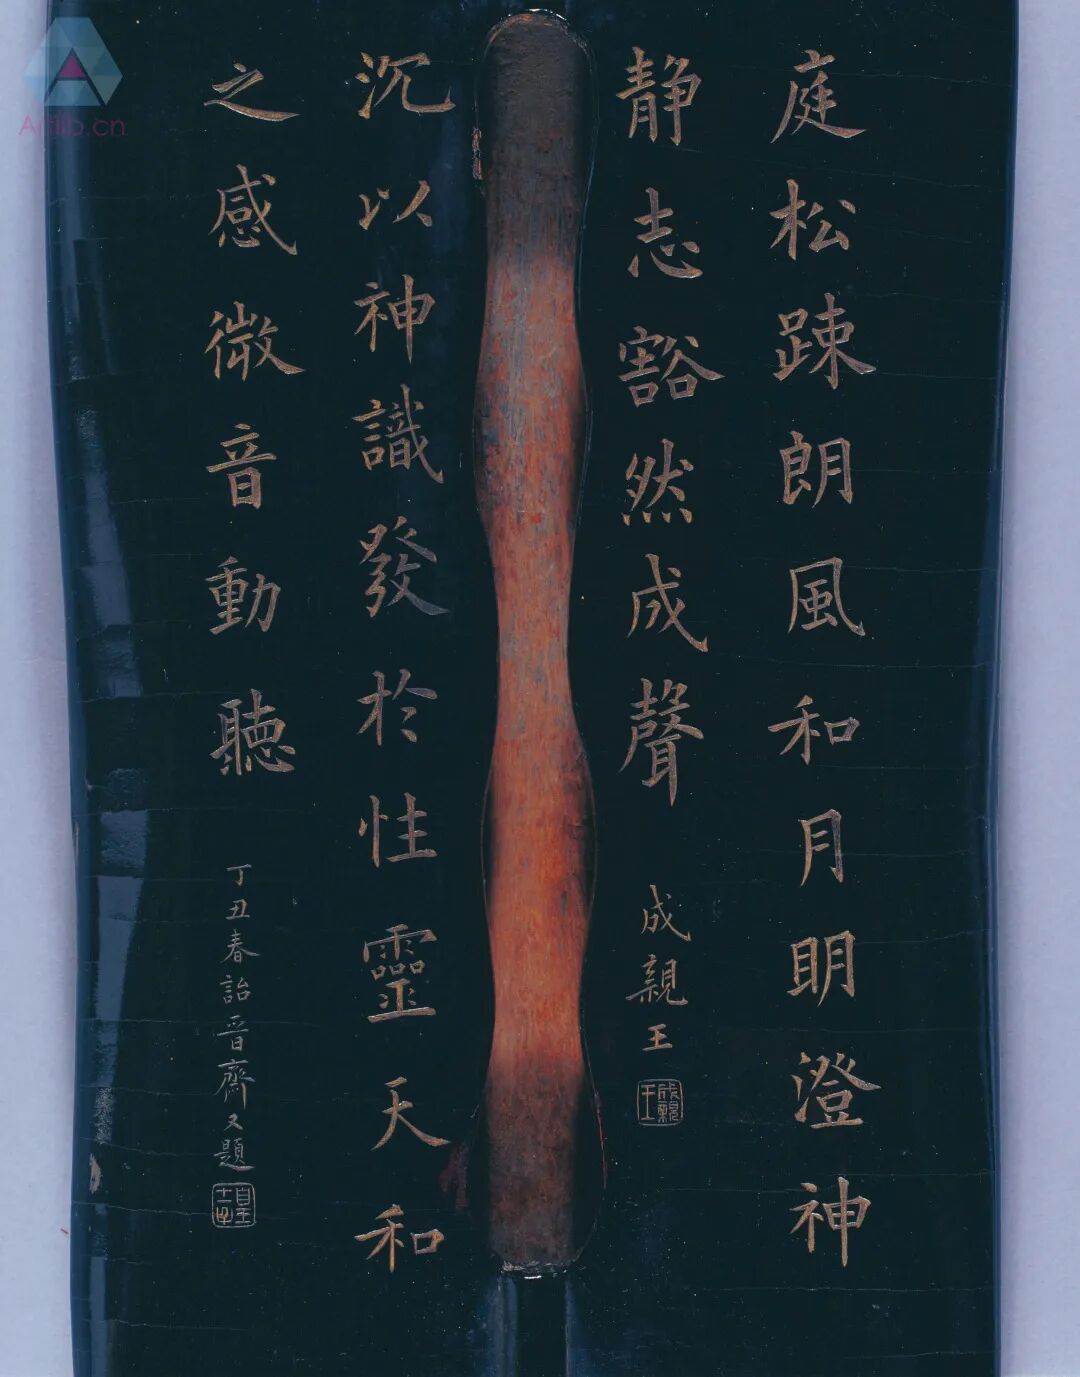 庭松踈朗風和月明澄神
静志豁然成聲
成親王
成親王
沉以神識發於性靈天和
之感微音動聽
丁丑春詒晋齋又題
皇十一子
Artlib.cn